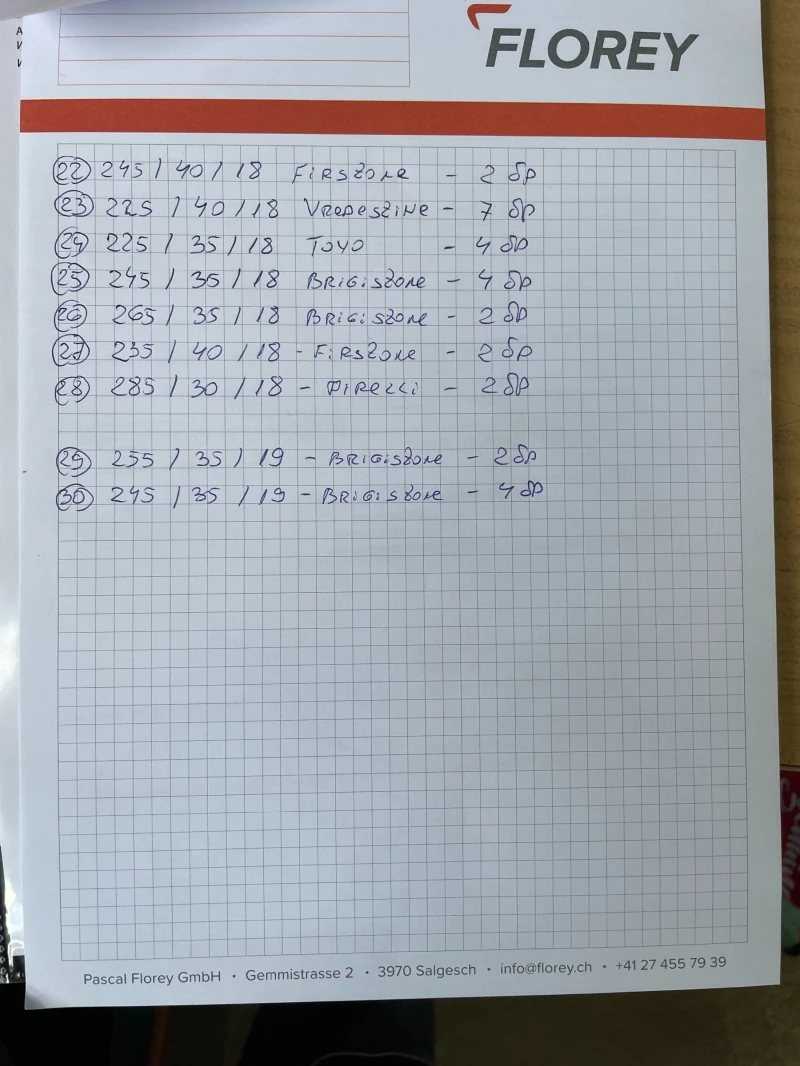 FLOREY
22 245 / 40 / 18 Firszone - 2 бр
23 225 / 40 / 18 Vredeszine - 7 бр
24 225 / 35 / 18 Toyo - 4 бр
25 245 / 35 / 18 Brigiszone - 4 бр
26 265 / 35 / 18 Brigiszone - 2 бр
27 235 / 40 / 18 - Firszone - 2 бр
28 285 / 30 / 18 - Pirelli - 2 бр
29 255 / 35 / 19 - Brigiszone - 2 бр
30 245 / 35 / 19 - Brigiszone - 4 бр
Pascal Florey GmbH • Gemmistrasse 2 • 3970 Salgesch • info@florey.ch • +41 27 455 79 39